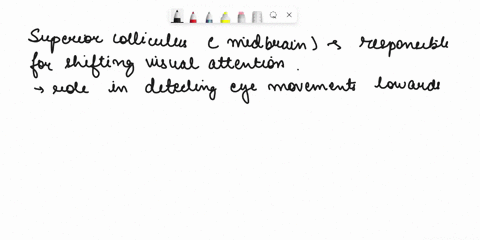 Superior colliculus (midbrain) is responsible
for shifting visual attention.
→ role in detecting eye movements towards